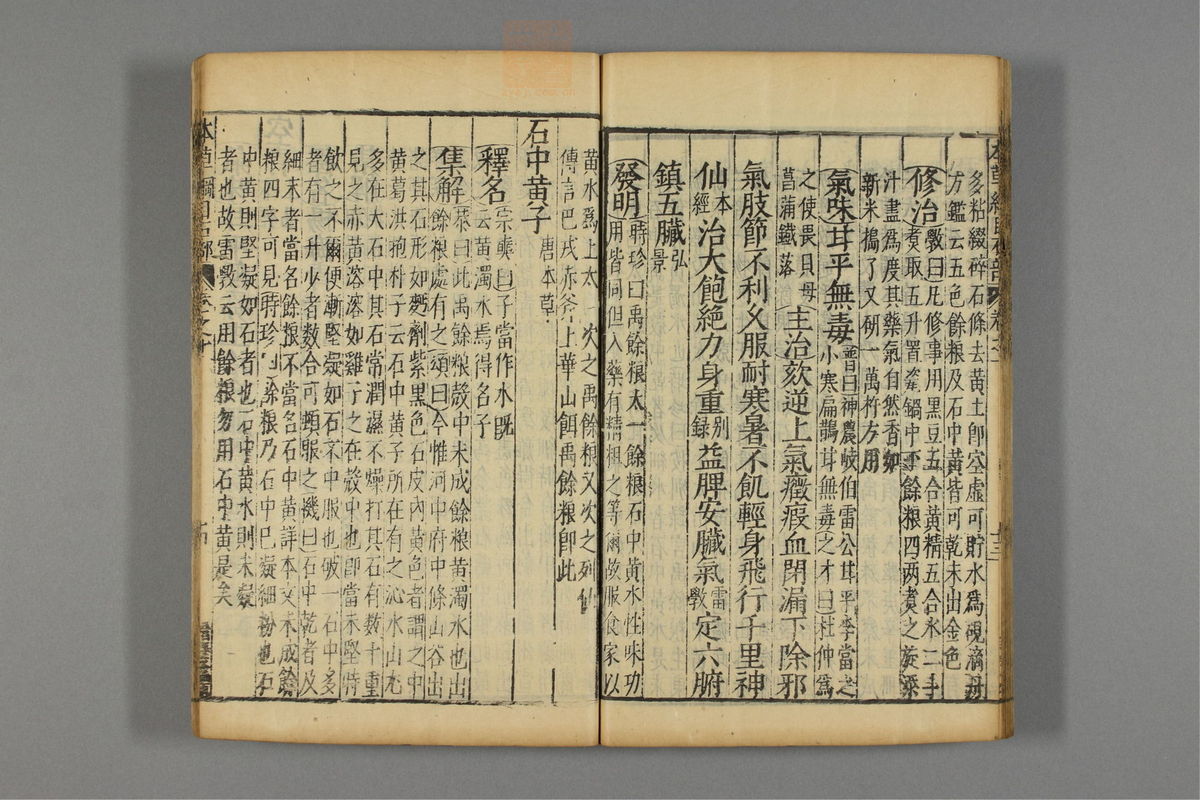 多粘綴碎石滌去黃土卽空虛可貯水爲硯滴丹
方鑑云五色餘粮及石中黃皆可乾末出金色
修治斅曰凡修事用黑豆五合黃精五合水二斗
煮取五升置瓷鍋中下餘粮四兩煮之旋添
汁盡爲度其藥氣自然香如
新米擣了又研一萬杵方用
氣味甘平無毒普曰神農岐伯雷公甘平李當之
小寒扁鵲甘無毒之才曰杜仲爲
之使畏貝母
菖蒲鐵落
主治欬逆上氣癥瘕血閉漏下除邪
氣肢節不利久服耐寒暑不飢輕身飛行千里神
仙本經治大飽絕力身重別錄益脾安臟氣雷斅定六腑
鎮五臟弘景
發明時珍曰禹餘粮太一餘粮石中黃水性味功
用皆同但入藥有精粗之等爾故服食家以
黃水爲上太 次之禹餘粮又次之列仙
傳言巴戎赤斧上華山餌禹餘粮卽此
石中黃子唐本草
釋名宗奭曰子當作水旣
云黃濁水焉得名子
集解恭曰此禹餘粮殼中未成餘粮黃濁水也出
餘粮處有之頌曰今惟河中府中條山谷出
之其石形如麪劑紫黑色石皮內黃色者謂之中
黃葛洪抱朴子云石中黃子所在有之沁水山尤
多在大石中其石常潤濕不燥打其石有數十重
見之赤黃溶溶如雞子之在殼中也卽當未堅時
飲之不爾便漸堅凝如石不中服也破一石中多
者有一升少者數合可頓服之機曰石中乾者及
細末者當名餘粮不當名石中黃詳本文未成餘
粮四字可見時珍曰餘粮乃石中已凝細粉也石
中黃則堅凝如石者也石中黃水則未凝
者也故雷斅云用餘粮勿用石中黃是矣